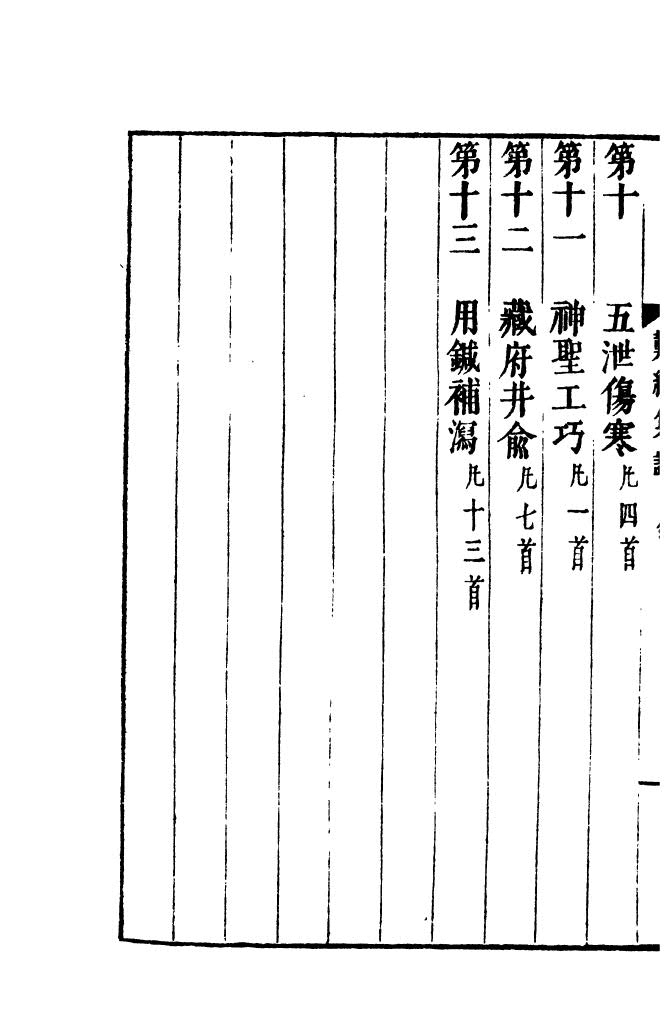 第十　五泄傷寒凡四首
第十一　神聖工巧凡一首
第十二　藏府井俞凡七首
第十三　用鍼補瀉凡十三首